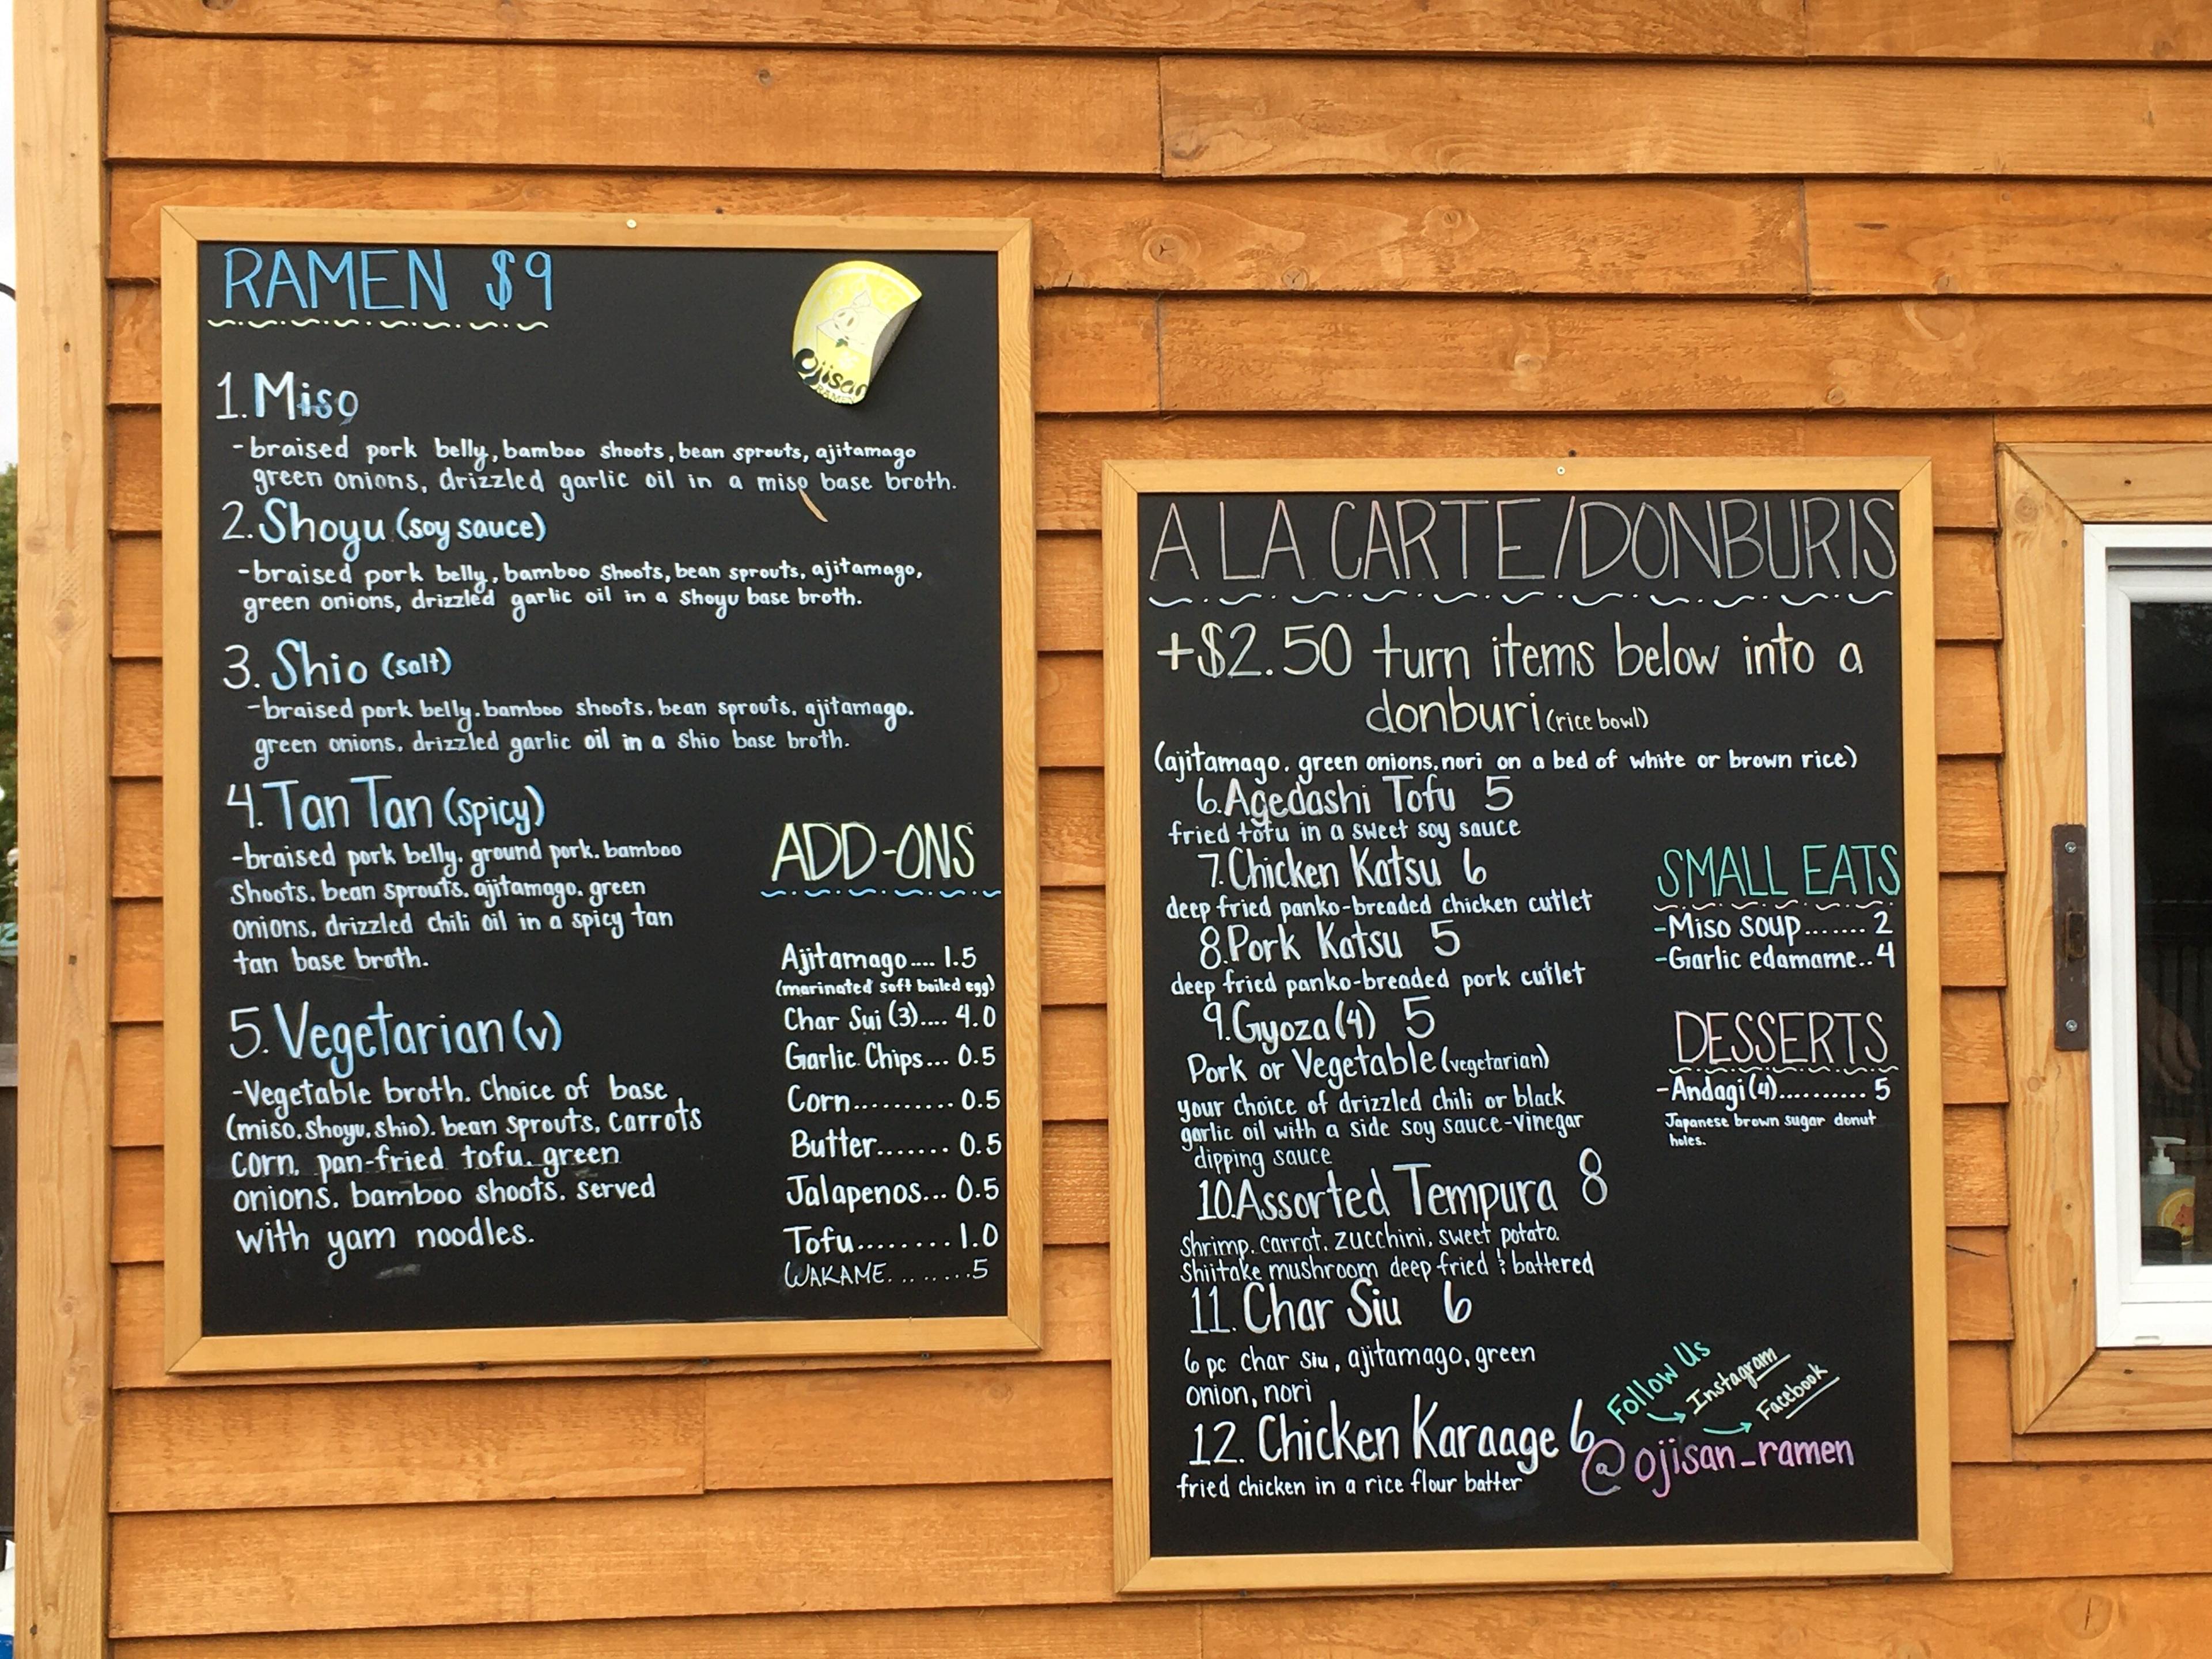 RAMEN $9
Ojisan
RAMEN
1. Miso
-braised pork belly, bamboo shoots, bean sprouts, ajitamago
green onions, drizzled garlic oil in a miso base broth.
2. Shoyu (soy sauce)
-braised pork belly, bamboo shoots, bean sprouts, ajitamago,
green onions, drizzled garlic oil in a shoyu base broth.
3. Shio (salt)
-braised pork belly, bamboo shoots, bean sprouts, ajitamago.
green onions, drizzled garlic oil in a shio base broth.
4. Tan Tan (spicy)
-braised pork belly, ground pork, bamboo
shoots, bean sprouts, ajitamago, green
onions, drizzled chili oil in a spicy tan
tan base broth.
5. Vegetarian (v)
-Vegetable broth. Choice of base
(miso, shoyu, shio). bean sprouts, carrots
corn, pan-fried tofu, green
onions, bamboo shoots. served
with yam noodles.
ADD-ONS
Ajitamago.... 1.5
(marinated soft boiled egg)
Char Sui (3).... 4.0
Garlic Chips... 0.5
Corn.......... 0.5
Butter....... 0.5
Jalapenos... 0.5
Tofu......... 1.0
WAKAME.........5
A LA CARTE/DONBURIS
+$2.50 turn items below into a
donburi (rice bowl)
(ajitamago, green onions, nori on a bed of white or brown rice)
6. Agedashi Tofu 5
fried tofu in a sweet soy sauce
7. Chicken Katsu 6
deep fried panko-breaded chicken cutlet
8. Pork Katsu 5
deep fried panko-breaded pork cutlet
9. Gyoza (4) 5
Pork or Vegetable (vegetarian)
your choice of drizzled chili or black
garlic oil with a side soy sauce-vinegar
dipping sauce
10. Assorted Tempura 8
shrimp, carrot, zucchini, sweet potato,
shiitake mushroom deep fried & battered
11. Char Siu 6
6 pc char siu, ajitamago, green
onion, nori
12. Chicken Karaage 6
fried chicken in a rice flour batter
SMALL EATS
-Miso soup....... 2
-Garlic edamame.. 4
DESSERTS
-Andagi (4).......... 5
Japanese brown sugar donut
holes.
Follow Us
Instagram
Facebook
@ojisan_ramen